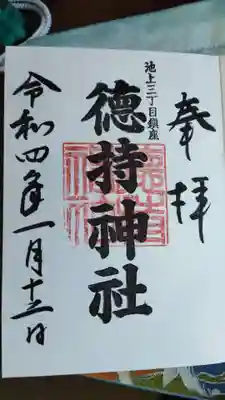 奉拝
池上三丁目鎮座
徳持神社
令和四年一月十三日